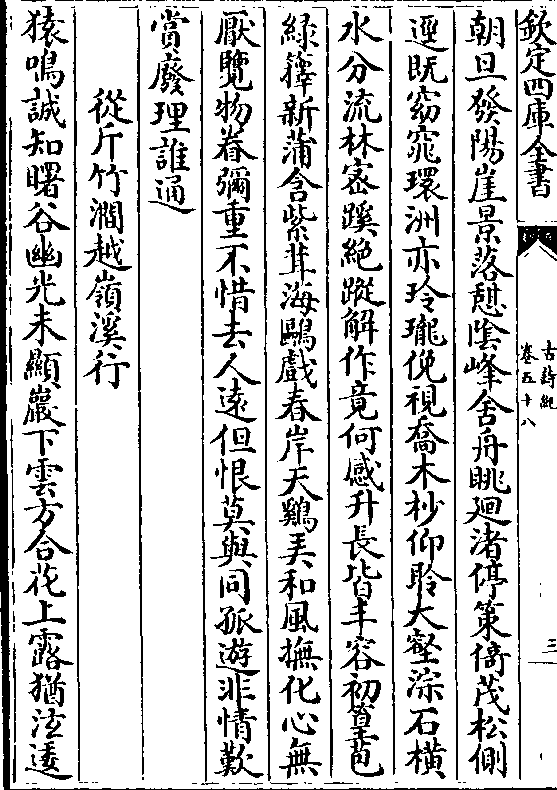 欽定四庫全書
古詩紀
卷五十八
三
朝旦發陽崖景落憇陰峰舍舟眺廻渚停策倚茂松側
逕既窈窕環洲亦玲瓏俛視喬木杪仰聆大壑淙石橫
水分流林宻蹊絶蹤解作竟何感升長皆丰容初篁苞
緑籜新蒲含紫茸海鷗戲春岸天鷄弄和風撫化心無
厭覽物眷彌重不惜去人逺但恨莫與同孤遊非情歎
賞廢理誰通
從斤竹澗越嶺溪行
猿鳴誠知曙谷幽光未顯巖下雲方合花上露猶泫逶